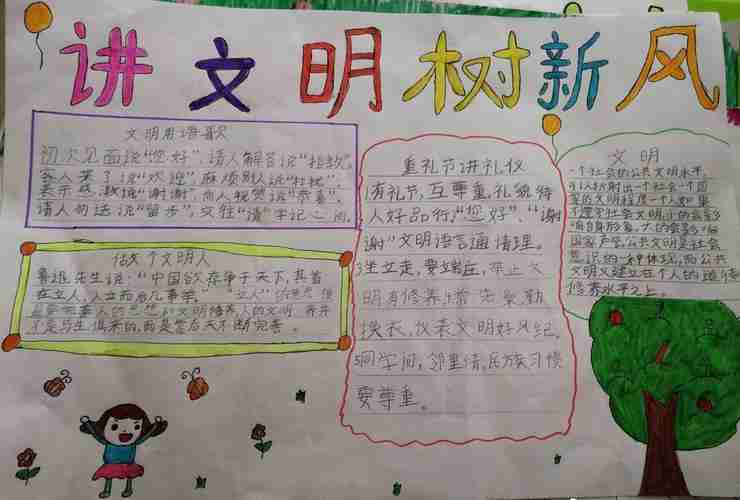 讲文明树新风
文明用语歌
初次见面说“您好”,请人解答说“指教”,
客人来了说“欢迎”,麻烦别人说“打扰”,
表示感激说“谢谢”,向人祝贺说“恭喜”,
请人勿送说“留步”,文雅“请”字记心间
做个文明人
鲁迅先生说:“中国欲存争于天下,其首
在立人,人立而后凡事举。”“立人”的意思
是要完善人的思想和文明修养,人的文明
不是与生俱来的,而是靠后天不断完善。
重礼节讲礼仪
1有礼节,互尊重,礼貌待
人好品行;“您好”、“谢
谢”文明语言通情理。
坐立走,要端庄,举止文
明有修养;
换衣,仪表文明好风纪。
同学间,邻里情,民族习惯
要尊重。
文明
一个社会的公共文明水平,
可以折射出一个社会一个国
家的文明程度一个人如果
不遵守社会文明,小的会影
响自身形象,大的会影响
国家声誉,公共文明是社会
意识的一种体现,而公共
文明又建立在个人的道德
修养水平之上。